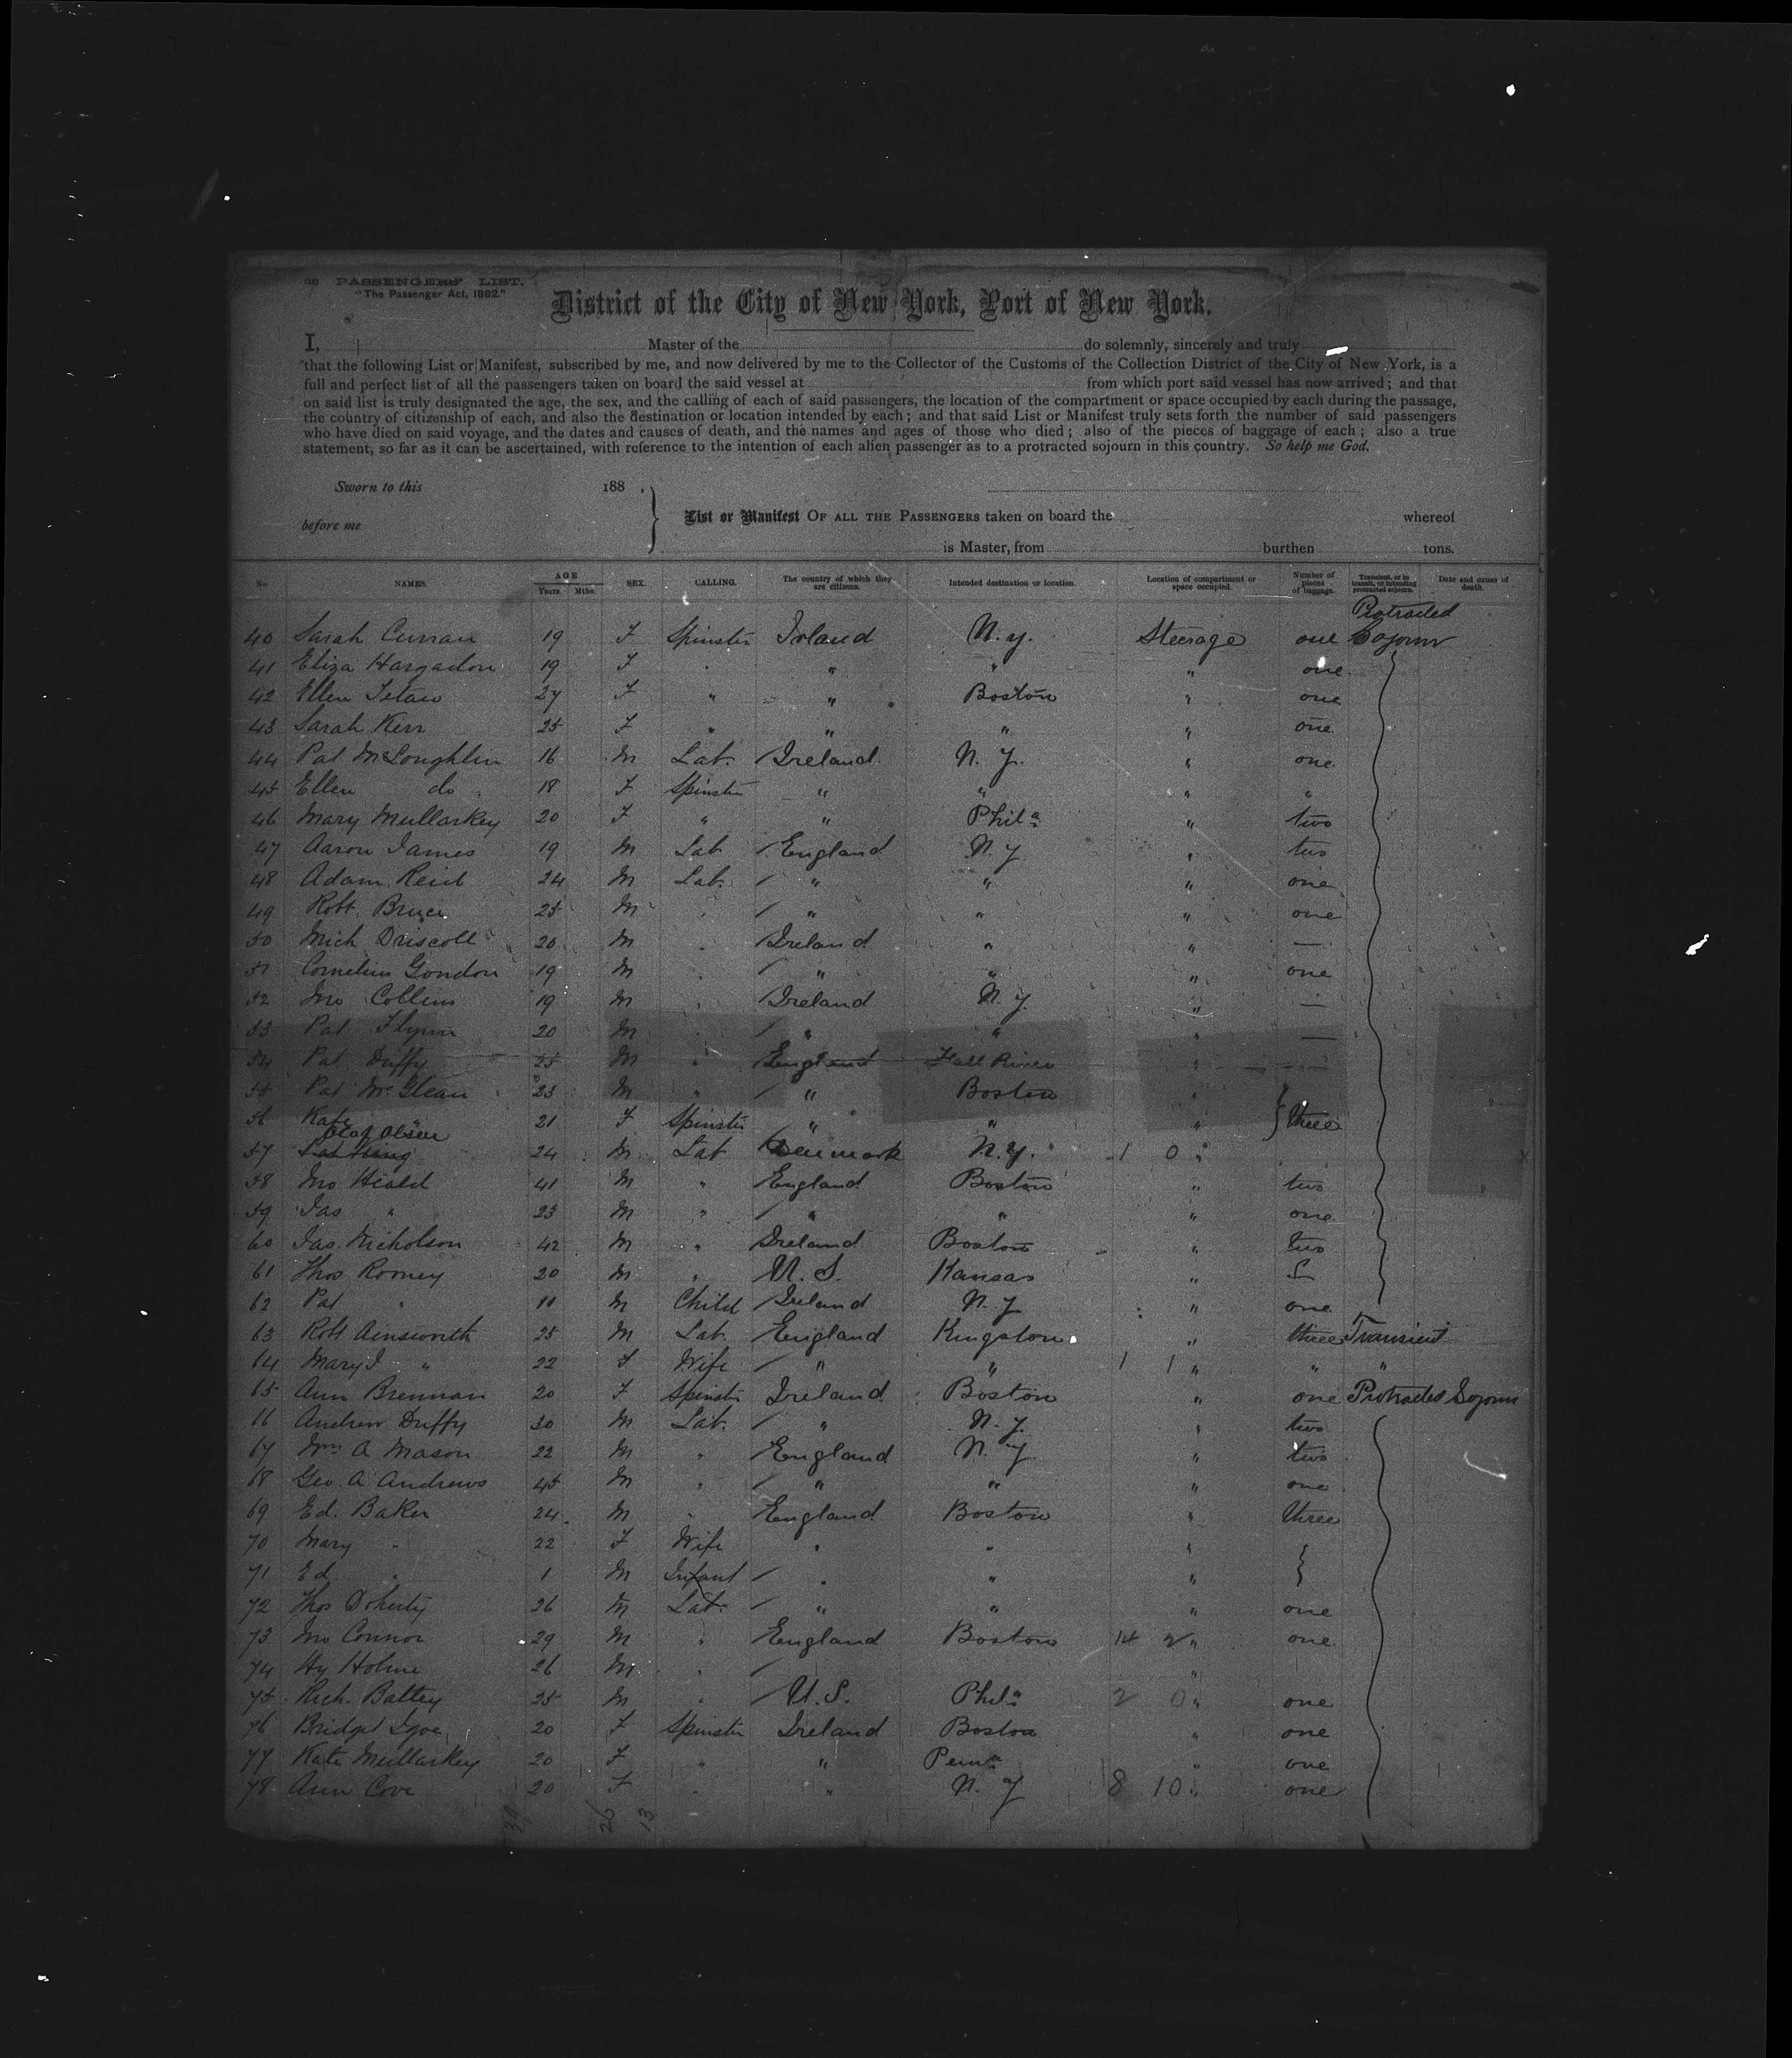 PASSENGERS' LIST.
"The Passenger Act, 1882."
District of the City of New York, Port of New York.
I, Master of the do solemnly, sincerely and truly
that the following List or Manifest, subscribed by me, and now delivered by me to the Collector of the Customs of the Collection District of the City of New York, is a
full and perfect list of all the passengers taken on board the said vessel at from which port said vessel has now arrived; and that
on said list is truly designated the age, the sex, and the calling of each of said passengers, the location of the compartment or space occupied by each during the passage,
the country of citizenship of each, and also the destination or location intended by each; and that said List or Manifest truly sets forth the number of said passengers
who have died on said voyage, and the dates and causes of death, and the names and ages of those who died; also of the pieces of baggage of each; also a true
statement, so far as it can be ascertained, with reference to the intention of each alien passenger as to a protracted sojourn in this country. So help me God.
Sworn to this 188
before me
List or Manifest OF ALL THE PASSENGERS taken on board the whereof
is Master, from burthen tons.
No. NAMES. AGE Years. Mths. SEX. CALLING. The country of which they are citizens. Intended destination or location. Location of compartment or space occupied. Number of pieces of baggage. Transient, or in transit, or intending protracted sojourn. Date and cause of death.
Protracted
40 Sarah Curran 19 F Spinster Irland N.y. Steerage one Sojourn
41 Eliza Hargadon 19 F " " " one
42 Ellen 27 F " " Boston " one
43 Sarah Kerr 25 F " " " " one
44 Pat McLoughlin 16 M Lab. Ireland N.Y. " one
45 Ellen do 18 F Spinster " " " "
46 Mary Mullarkey 20 F " " Phila " two
47 Aaron James 19 M Lab England N.Y " two
48 Adam Reid 24 M Lab. " " " one
49 Robt Bruce 25 M " " " one
50 Mich Driscoll 20 M Ireland " " —
51 Cornelius Gondon 19 M " " " one
52 Jno Collins 19 M Ireland N.y. " —
53 Pat Flynn 20 M " " " —
54 Pat Duffy 25 M " England Fall River " —
55 Pat McGlean 23 M " " Boston "
56 Kate " 21 F Spinster " " " three
Olaf Olsen
57 24 M Lab Denmark N.Y. 1 0 "
58 Jno Heald 41 M " England Boston " two
59 Jas " 23 M " " " " one
60 Jas. Nicholson 42 M " Ireland Boston " two
61 Thos Rooney 20 M " U.S. Kansas "
62 Pat " 11 M Child Ireland N.Y " one
63 Robt Ainsworth 25 M Lab. England Kingston " three Transient
64 Mary J " 22 F Wife " " 1 1 " " "
65 Ann Brennan 20 F Spinster Ireland Boston " one Protracted Sojourn
66 Andrew Duffy 30 M Lab. " N.Y. " two
67 Wm A Mason 22 M " England N.Y. " two
68 Geo. A Andrews 45 M " " " one
69 Ed. Baker 24 M " England Boston " three
70 Mary " 22 F Wife " " "
71 Ed. " 1 M Infant " " "
72 Thos Doherty 26 M Lab. " " " one
73 Jno Connor 29 M " England Boston 14 2 " one
74 Hy Holme 26 M " "
75 Rich. Battey 25 M " U.S. Phila 2 0 " one
76 Bridget Igoe 20 F Spinster Ireland Boston " one
77 Kate Mullarkey 20 F " " Penna " one
78 Ann Cove 20 F " " N.Y 8 10 " one
39 26 13